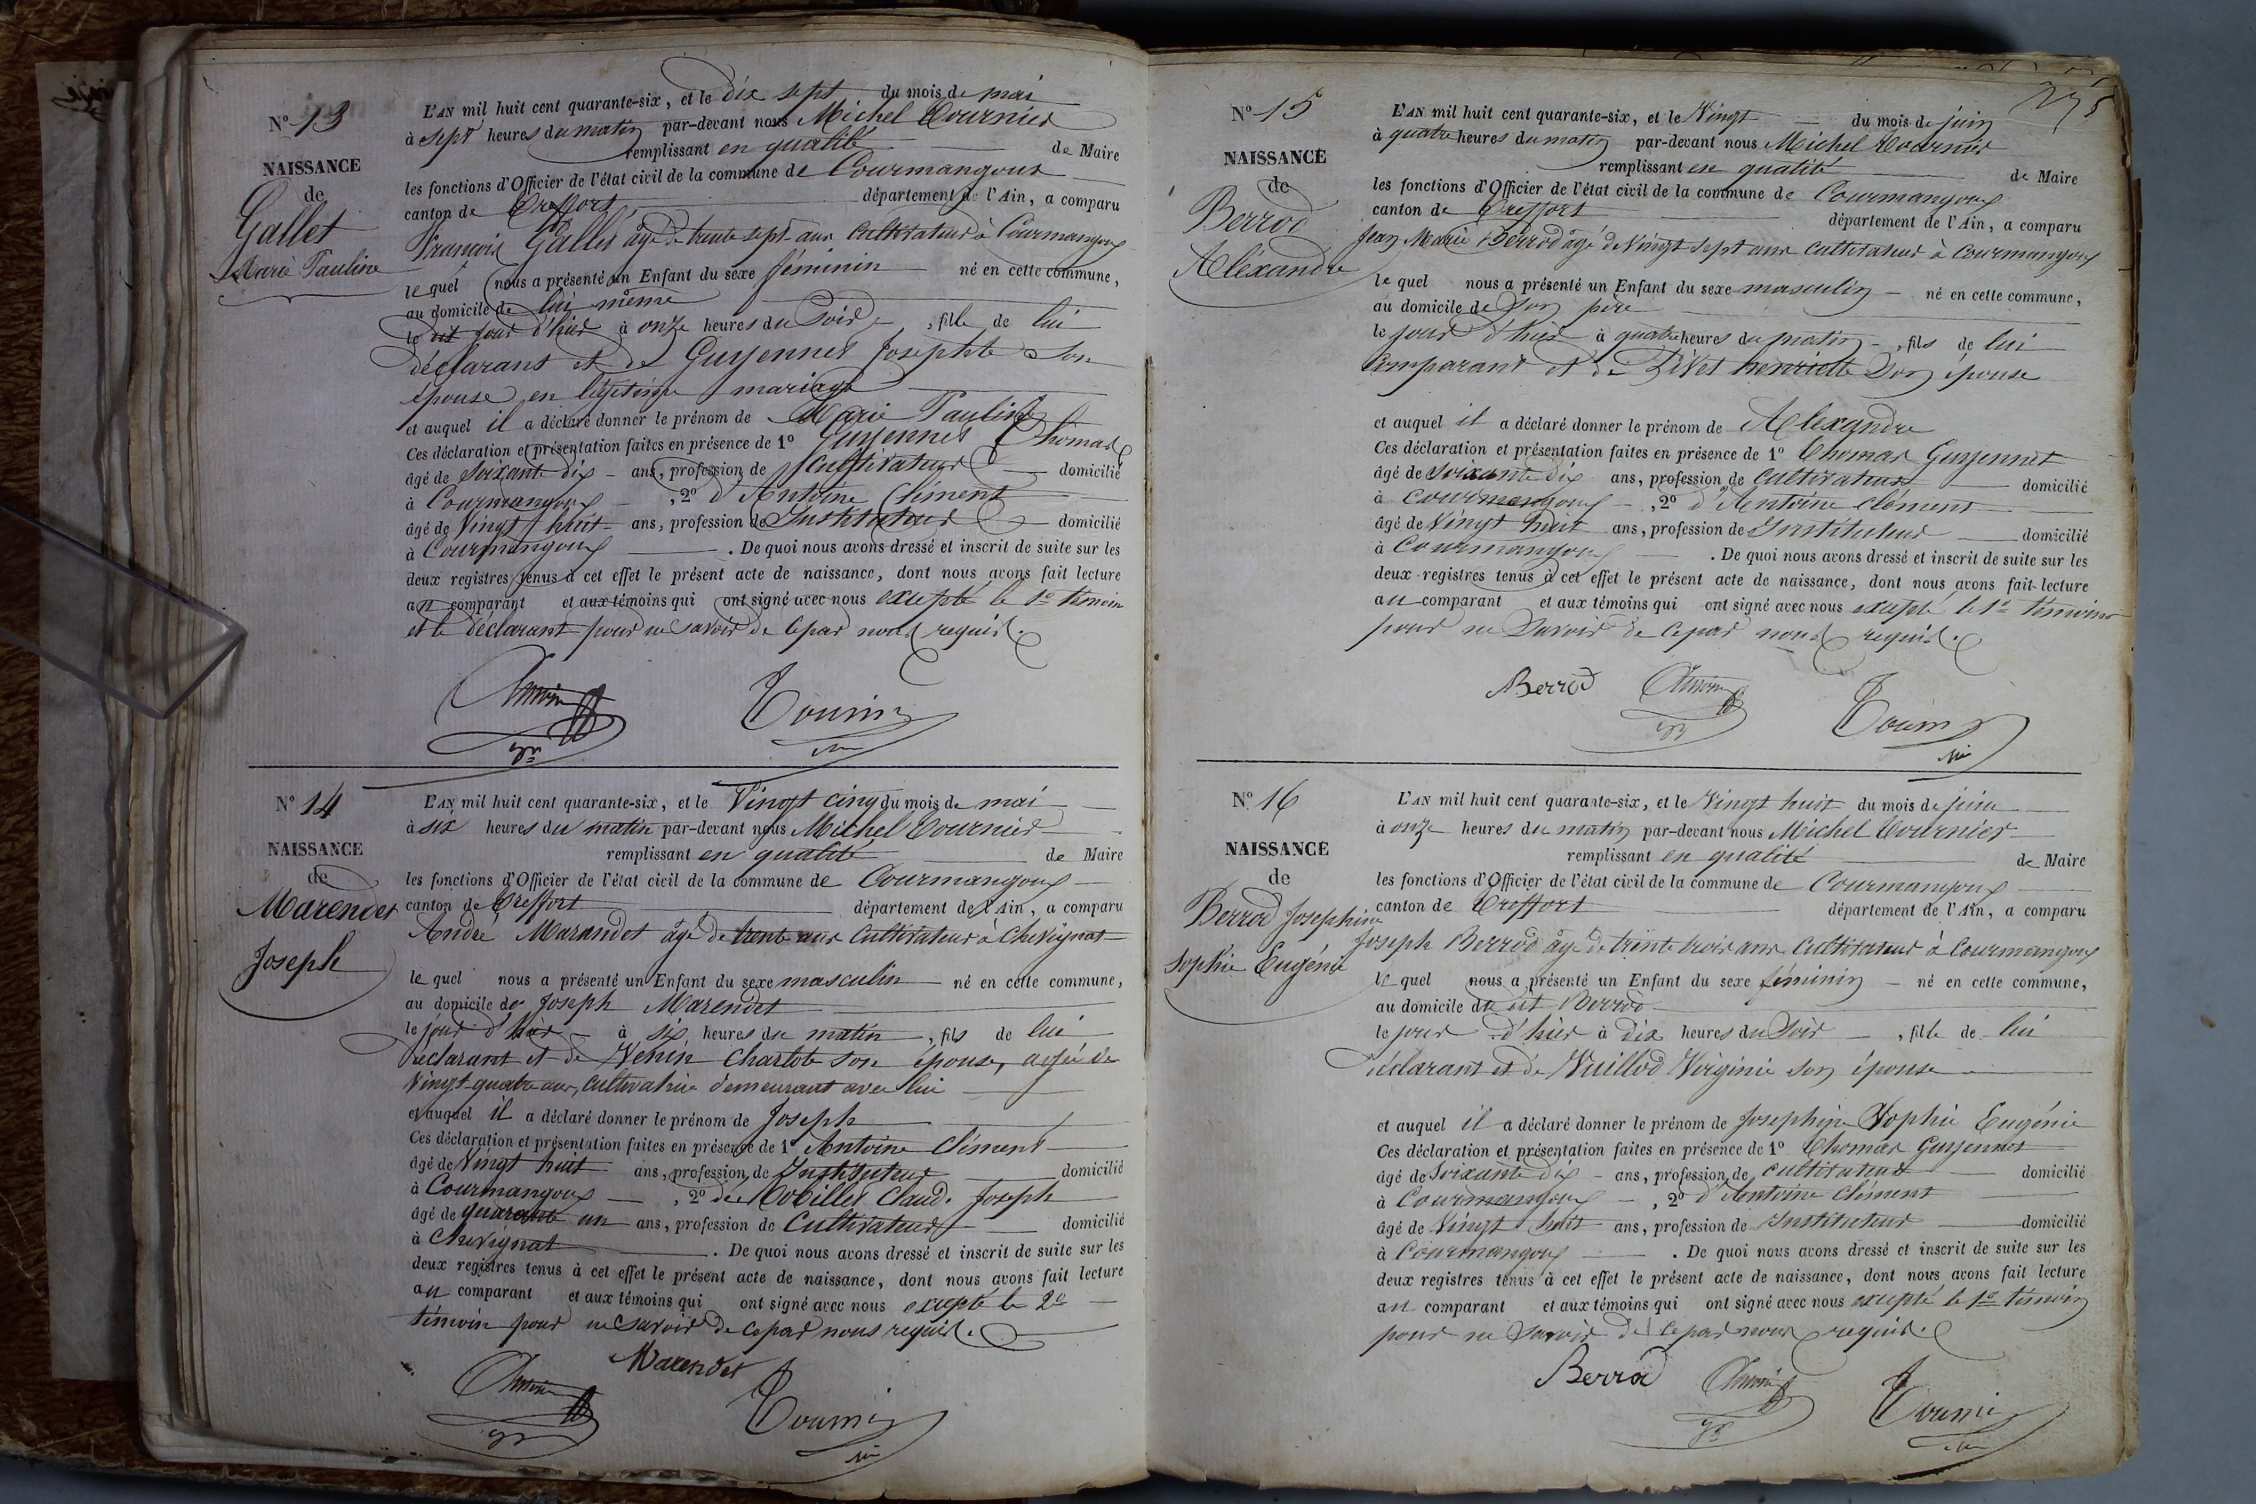 N.º 13
NAISSANCE
de
Gallet
Marie Pauline
L'AN mil huit cent quarante-six, et le dix sept du mois de mai
à sept heures du matin par-devant nous Michel Tournier
remplissant en qualité de Maire
les fonctions d'Officier de l'état civil de la commune de Courmangoux
canton de Treffort département de l'Ain, a comparu
François Gallet âgé de trente sept ans cultivateur à Courmangoux
le quel nous a présenté un Enfant du sexe féminin né en cette commune,
au domicile de lui même
le dit jour d'hier à onze heures du soir, fille de lui
déclarant et de Guyennet Josephte son
épouse en légitime mariage
et auquel il a déclaré donner le prénom de Marie Pauline
Ces déclaration et présentation faites en présence de 1º Guyennet Thomas
âgé de soixante dix ans, profession de cultivateur domicilié
à Courmangoux, 2º d'Antoine Clément
âgé de vingt huit ans, profession de Instituteur domicilié
à Courmangoux. De quoi nous avons dressé et inscrit de suite sur les
deux registres tenus à cet effet le présent acte de naissance, dont nous avons fait lecture
au comparant et aux témoins qui ont signé avec nous excepté le 1er témoin
et le déclarant pour ne savoir de ce par nous requis.
Tournier
N.º 14
NAISSANCE
de
Marendet
Joseph
L'AN mil huit cent quarante-six, et le Vingt cinq du mois de mai
à six heures du matin par-devant nous Michel Tournier
remplissant en qualité de Maire
les fonctions d'Officier de l'état civil de la commune de Courmangoux
canton de Treffort département de l'Ain, a comparu
André Marandet âgé de trente ans cultivateur à Chevignat
le quel nous a présenté un Enfant du sexe masculin né en cette commune,
au domicile de Joseph Marendet
le jour d'hier à six heures du matin, fils de lui
déclarant et de Venin Charlote son épouse, agée de
vingt quatre ans, cultivatrice demeurant avec lui
et auquel il a déclaré donner le prénom de Joseph
Ces déclaration et présentation faites en présence de 1º Antoine Clément
âgé de vingt huit ans, profession de Instituteur domicilié
à Courmangoux, 2º de Claude Joseph
âgé de quarante un ans, profession de Cultivateur domicilié
à Chevignat. De quoi nous avons dressé et inscrit de suite sur les
deux registres tenus à cet effet le présent acte de naissance, dont nous avons fait lecture
au comparant et aux témoins qui ont signé avec nous excepté le 2e
témoin pour ne savoir de ce par nous requis.
Marendet
Tournier
N.º 15
NAISSANCE
de
Berrod
Aléxandre
L'AN mil huit cent quarante-six, et le Vingt du mois de juin
à quatre heures du matin par-devant nous Michel Tournier
remplissant en qualité de Maire
les fonctions d'Officier de l'état civil de la commune de Courmangoux
canton de Treffort département de l'Ain, a comparu
Jean Marie Berrod âgé de vingt sept ans cultivateur à Courmangoux
le quel nous a présenté un Enfant du sexe masculin né en cette commune,
au domicile de son père
le jour d'hier à quatre heures du matin, fils de lui
comparant et de henriette son épouse
et auquel il a déclaré donner le prénom de Alexandre
Ces déclaration et présentation faites en présence de 1º Thomas Guyennet
âgé de soixante dix ans, profession de cultivateur domicilié
à Courmangoux, 2º d'Antoine Clément
âgé de vingt huit ans, profession de Instituteur domicilié
à Courmangoux. De quoi nous avons dressé et inscrit de suite sur les
deux registres tenus à cet effet le présent acte de naissance, dont nous avons fait lecture
au comparant et aux témoins qui ont signé avec nous excepté le 1er témoin
pour ne savoir de ce par nous requis.
Berrod
Tournier
N.º 16
NAISSANCE
de
Berrod Josephine
Sophie Eugénie
L'AN mil huit cent quarante-six, et le Vingt huit du mois de juin
à onze heures du matin par-devant nous Michel Tournier
remplissant en qualité de Maire
les fonctions d'Officier de l'état civil de la commune de Courmangoux
canton de Treffort département de l'Ain, a comparu
Joseph Berrod âgé de trente trois ans cultivateur à Courmangoux
le quel nous a présenté un Enfant du sexe féminin né en cette commune,
au domicile du dit Berrod
le jour d'hier à dix heures du soir, fille de lui
déclarant et de Vuillod Virginie son épouse
et auquel il a déclaré donner le prénom de Josephine Sophie Eugénie
Ces déclaration et présentation faites en présence de 1º Thomas Guyennet
âgé de soixante dix ans, profession de cultivateur domicilié
à Courmangoux, 2º d'Antoine Clément
âgé de vingt huit ans, profession de Instituteur domicilié
à Courmangoux. De quoi nous avons dressé et inscrit de suite sur les
deux registres tenus à cet effet le présent acte de naissance, dont nous avons fait lecture
au comparant et aux témoins qui ont signé avec nous excepté le 1er témoin
pour ne savoir de ce par nous requis.
Berrod
Tournier